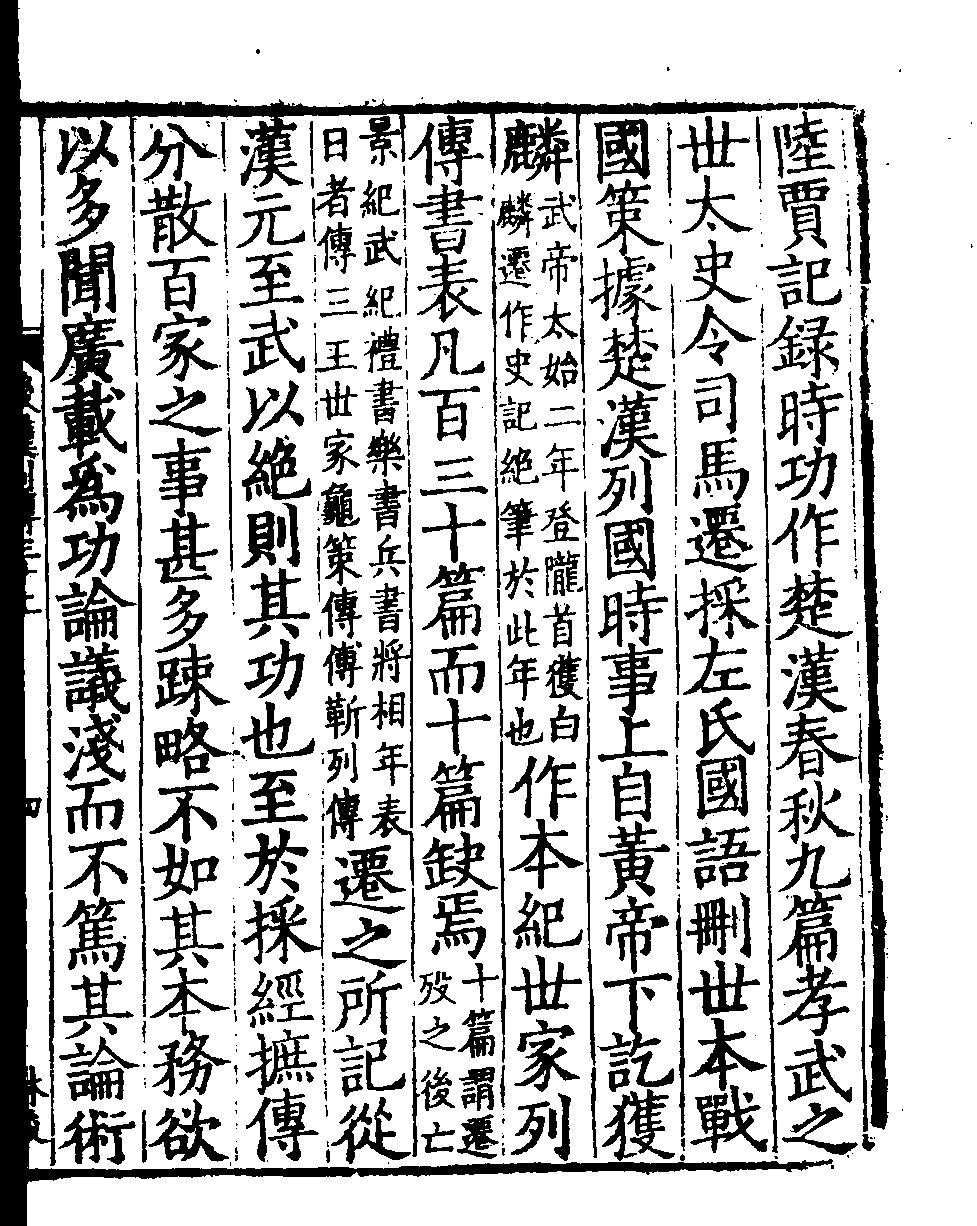 陸賈記録時功作楚漢春秋九篇孝武之
世太史令司馬遷採左氏國語刪世本戰
國策據楚漢列國時事上自黃帝下訖獲
麟武帝太始二年登隴首獲白麟遷作史記絶筆於此年也作本紀世家列
傳書表凡百三十篇而十篇缺焉十篇謂遷歿之後亡
景紀武紀禮書樂書兵書將相年表日者傳三王世家龜策傳傅靳列傳遷之所記從
漢元至武以絶則其功也至於採經摭傳
分散百家之事甚多踈略不如其本務欲
以多聞廣載爲功論議淺而不篤其論術